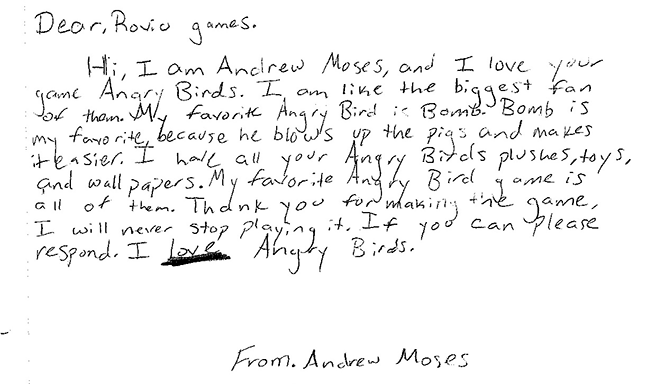 Dear, Rovio games.
Hi, I am Andrew Moses, and I love your
game Angry Birds. I am like the biggest fan
of them. My favorite Angry Bird is Bomb. Bomb is
my favorite, because he blows up the pigs and makes
it easier. I have all your Angry Birds plushes, toys,
and wall papers. My favorite Angry Bird game is
all of them. Thank you for making the game,
I will never stop playing it. If you can please
respond. I love Angry Birds.
From. Andrew Moses